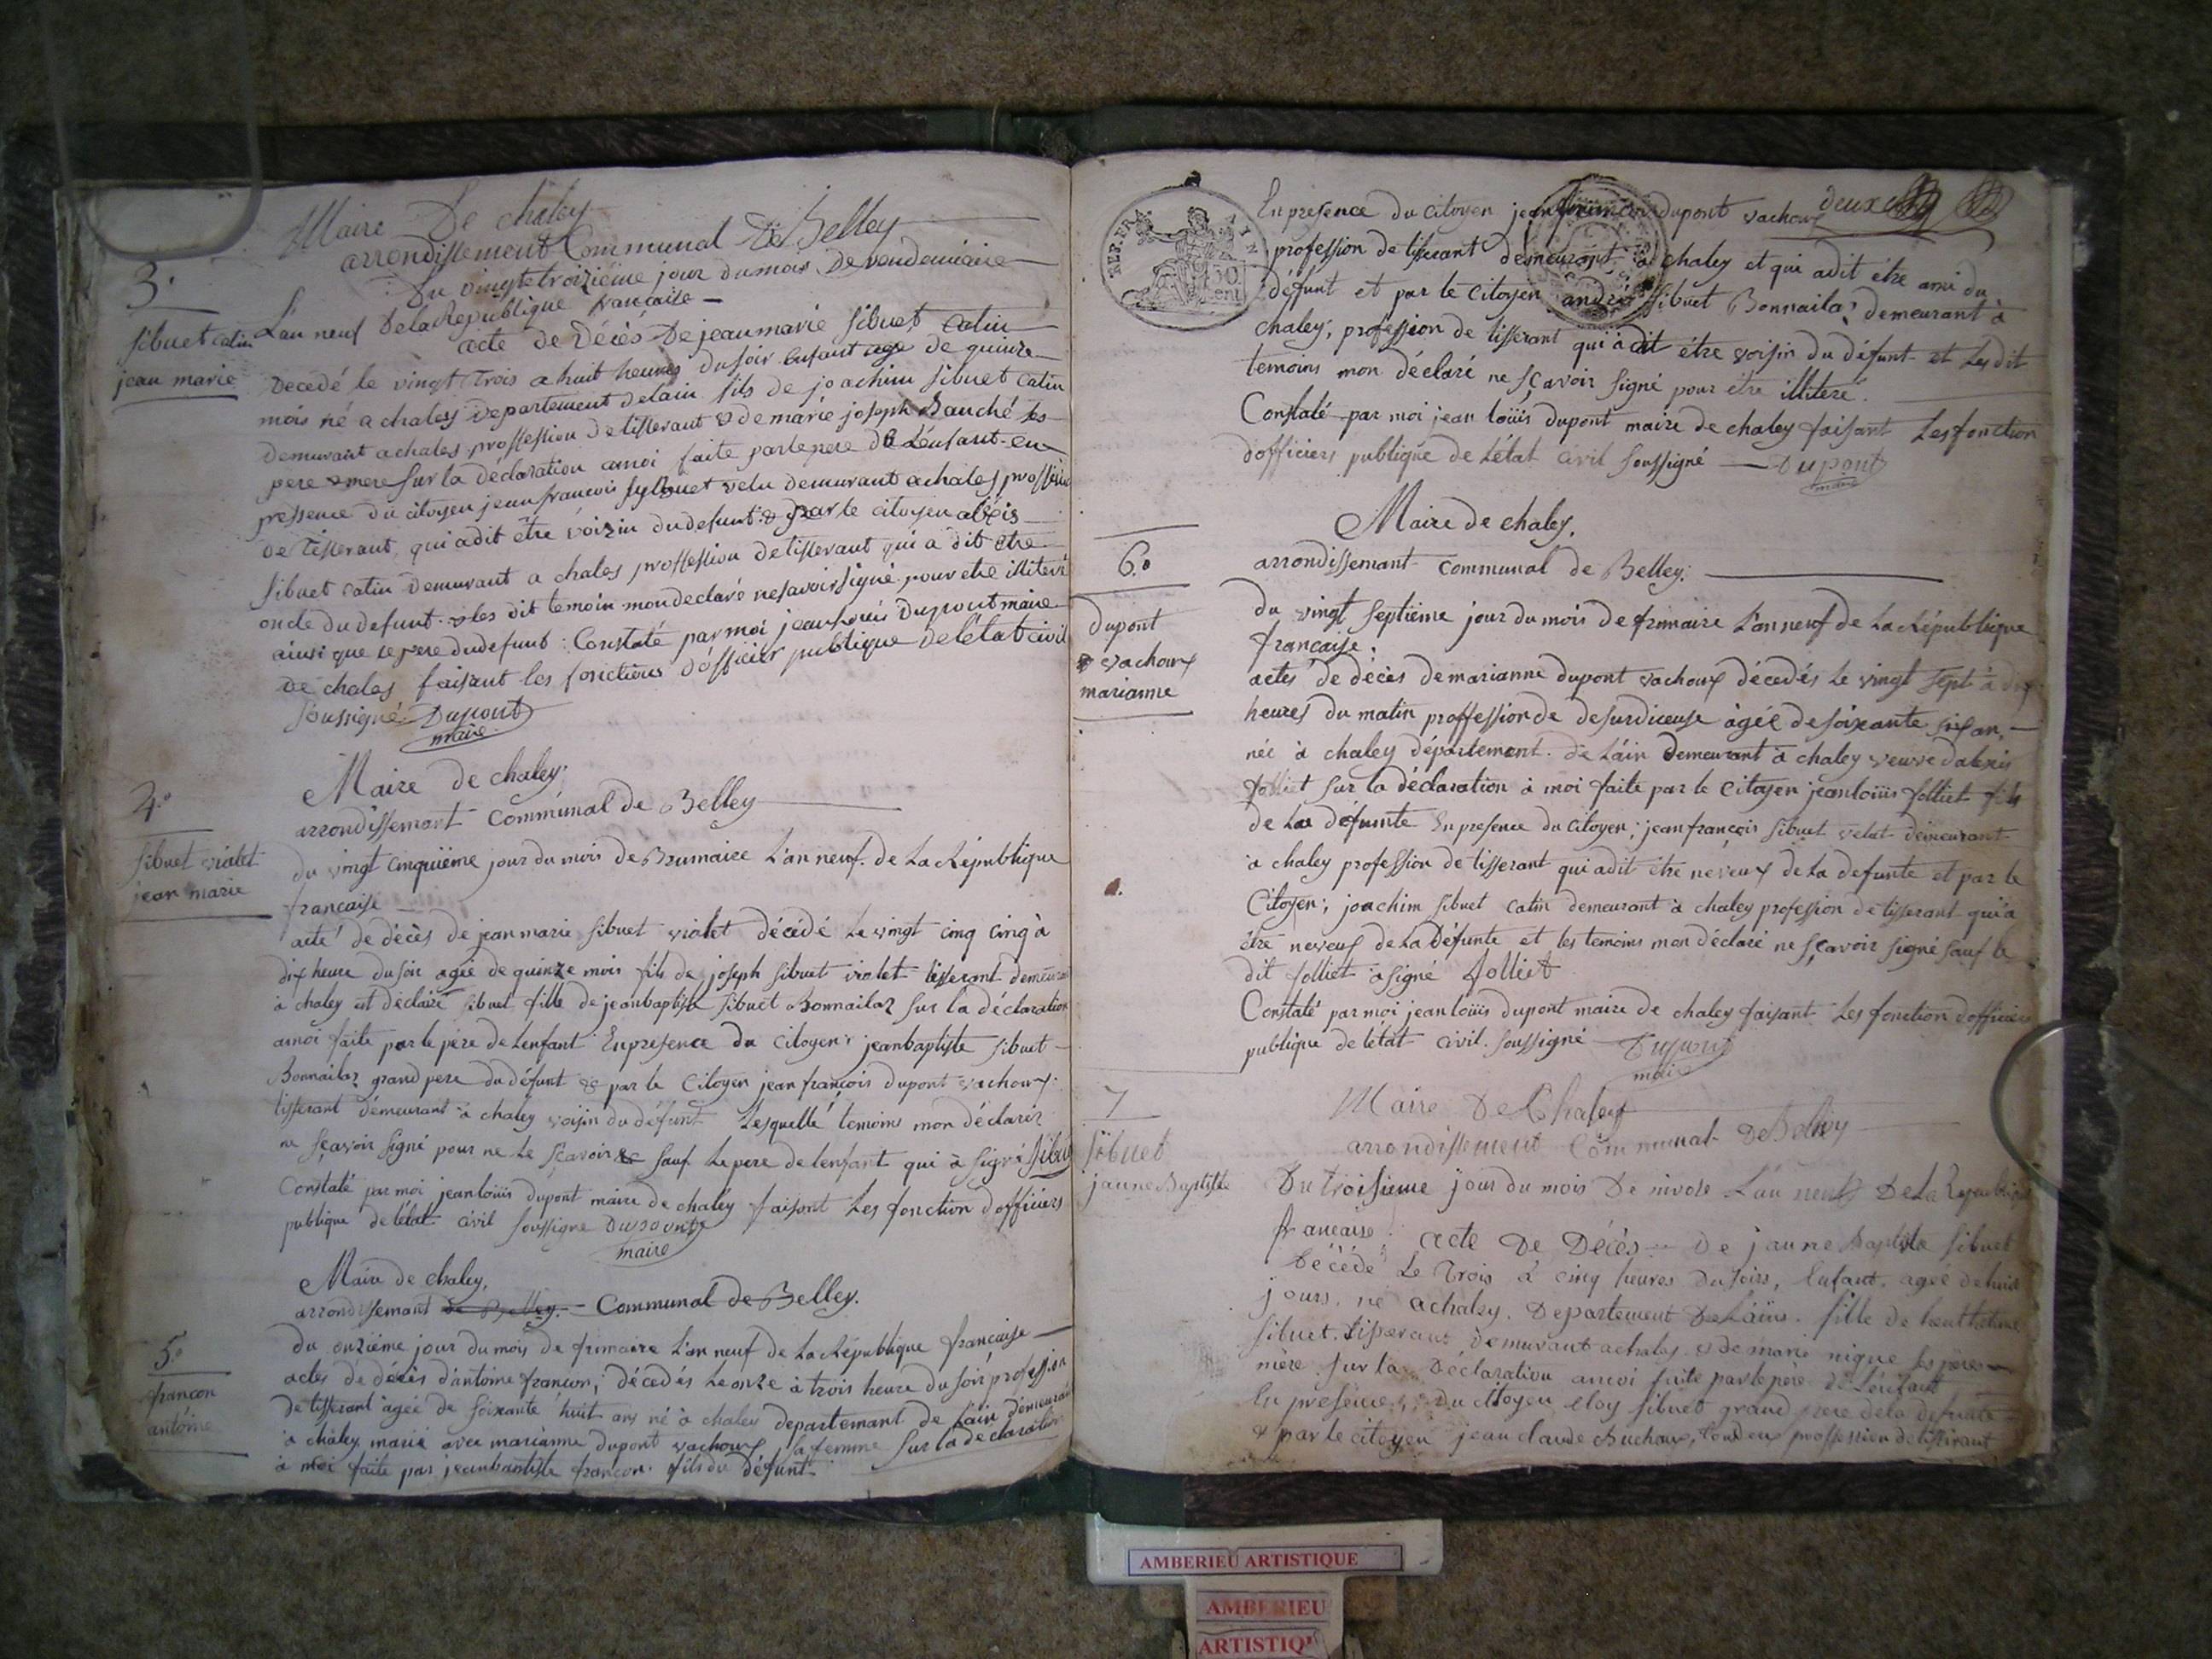 Maire De chaley
arrondissement Communal De Belley
3.
Du vingt troizieme jour du mois De vendemiaire
L'an neuf De la Republique francaise
sibuet catin
jean marie
acte de Décès De jean marie sibuet catin
Decedé le vingt trois a huit heures du soir Enfant age de quinze
mois né a chaley Departement de lain fils de joachim sibuet catin
demurant a chaley proffession de tisserant & de marie joseph Bauché ses
pere & mere sur la déclaration amoi faite par le pere de L'enfant en
pressence du citoyen jean francois sybuet velu demurant a chaley proffesion
de Tisserant, qui adit être voizin du defunt & par le citoyen alexis
sibuet catin Demurant a chaley proffession de tisserant qui a dit etre
oncle du defunt & les dit temoin mon declaré ne savoir signé pour etre illiteré
ainsi que le pere du defunt : Constaté par moi jean Louis Dupont maire
De chaley faisant les fonctions d'officier publique de l'état civil
soussigné Dupont
maire
Maire de chaley.
4.o
arrondissemant Communal de Belley
sibuet violet
jean marie
du vingt cinquiéme jour du mois de Brumaire L'an neuf. de La République
francaise
acte de décès de jean marie sibuet violet décédé Le vingt cinq cinq à
dix heure du soir agée de quinze mois fils de joseph sibuet violet tisserant demeurant
à chaley est déclairé sibuet fille de jeanbaptiste sibuet Bonnailaz sur la déclaration
amoi faite par le pére de Lenfant En presence du Citoyen jeanbaptiste sibuet
Bonnailaz grand pere du défunt & par le Citoyen jean francois dupont vachoux
tisserant démeurant à chaley voisin du défunt Lesquellé temoins mon déclarér
ne sçavoir signé pour ne Le sçavoir sauf Le pere de lenfant qui à signé sibuet
Constaté par moi jean loüis dupont maire de chaley faisant Les fonction dofficiers
publique de l'état civil soussigne Dupont
maire
Maire de chaley.
arrondissemant de Belley. Communal de Belley.
5.o
francon
antoine
du onziéme jour du mois de frimaire L'an neuf de La République francaise
actes de décès d'antoine francon, décedés Le onze à trois heure du soir profession
de tisserant agée de soixante huit ans né à chaley departemant de Lain demeurant
à chaley marié avec marianne dupont vachoux sa femme sur la declaration
à moi faite par jeanbaptiste francon fils du défunt
REP. FRA.
50
cent
deux
En presence du Citoyen jean francois dupont vachoux
profession de tisserant demeurant à chaley et qui adit étre ami du
défunt et par le Citoyen andré sibuet Bonnailaz demeurant à
chaley, profession de tisserant qui à dit étre voisin du défunt et Les dit
temoins mon déclaré ne sçavoir signé pour étre illiteré.
Constaté par moi jean loüis dupont maire de chaley faisant Les fonction
dofficiers publique de L'état civil soussigné Dupont
maire
Maire de chaley.
6.o
arrondissemant communal de Belley.
dupont
vachoux
marianne
du vingt septiéme jour du mois de frimaire L'an neuf de La République
francaise.
actes de décès de marianne dupont vachoux décedés Le vingt sept à dix
heures du matin proffession de desurdiceuse àgée de soixante six an,
née à chaley département de Lain demeurant à chaley veuve d'alexis
folliet sur la déclaration à moi faite par le Citoyen jean loüis folliet fils
de La défunte En presence du Citoyen, jean françois sibuet velat demeurant
à chaley profession de tisserant qui adit étre neveux de La defunte et par le
Citoyen; joachim sibuet catin demeurant à chaley profession de tisserant qui a
étre neveux de La défunte et les temoins mon déclaré ne sçavoir signé sauf Le
dit folliet à signé folliet
Constaté par moi jean loüis dupont maire de chaley faisant Les fonction dofficiers
publique de l'état civil. soussigné Dupont
maire
7
Maire De Chaley
arrondissement Communal De Belley
sibuet
jaune Baptiste
Du troisieme jour du mois De nivose L'an neuf De La Republique
francaise.
acte De Décès De jaune Baptiste sibuet
Décédé Le Trois à cinq heures du soirs, Enfant. agée de huit
jours. né a chaley. Departement De Lain. fille de
sibuet. Tisserant demurant a chaley & de marie nique ses péres
mére sur la Déclaration amoi faite par le père de L'enfant
En presence Du Citoyen Eloy sibuet grand pere de la defunte
& par le citoyen jean claude Buchoux, tous deux proffession de tisserant
AMBERIEU ARTISTIQUE
AMBERIEU
ARTISTIQU